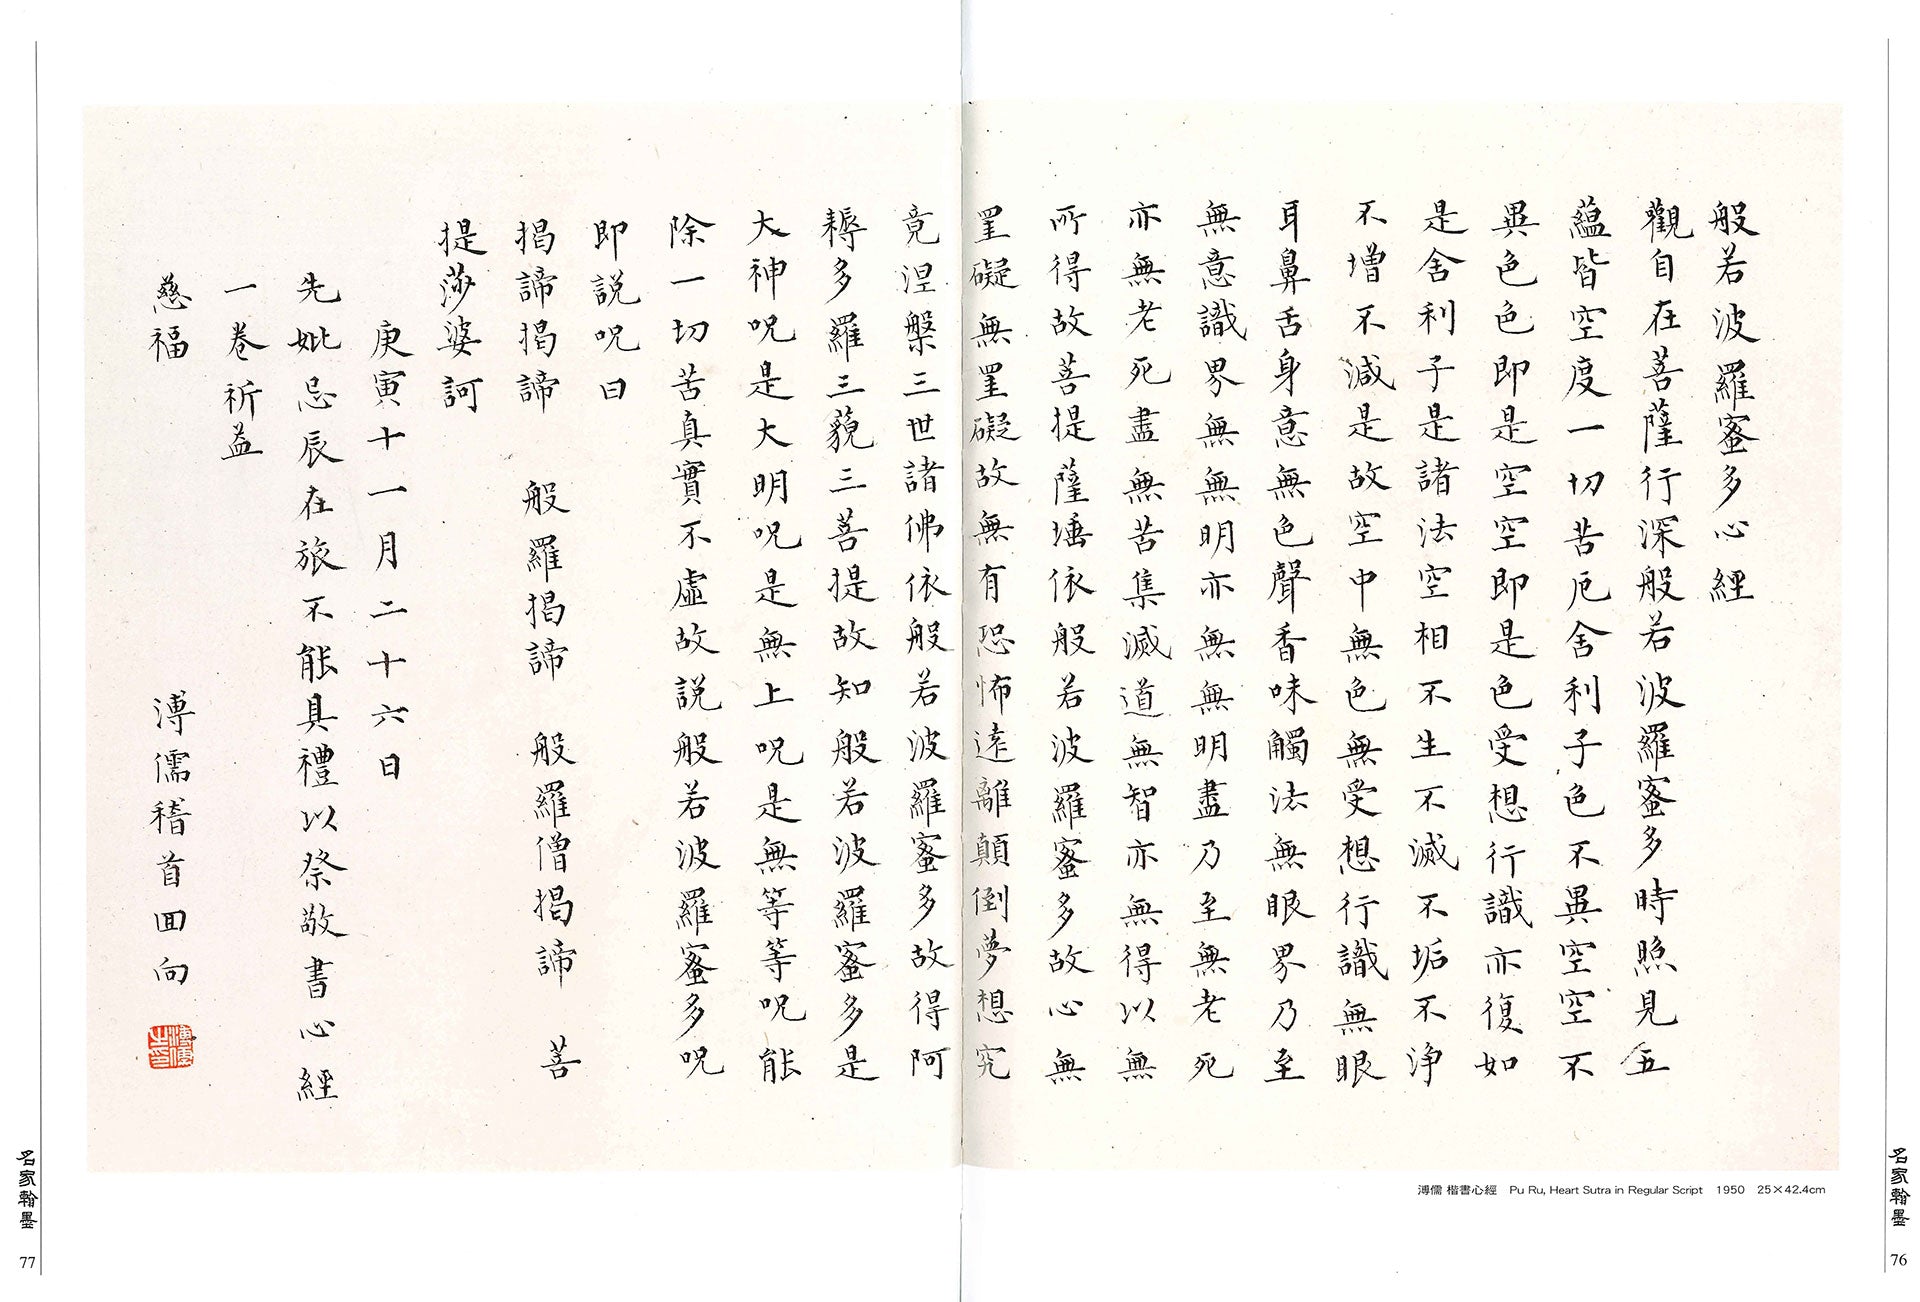 般若波羅蜜多心經
觀自在菩薩行深般若波羅蜜多時照見五
蘊皆空度一切苦厄舍利子色不異空空不
異色色即是空空即是色受想行識亦復如
是舍利子是諸法空相不生不滅不垢不淨
不增不減是故空中無色無受想行識無眼
耳鼻舌身意無色聲香味觸法無眼界乃至
無意識界無無明亦無無明盡乃至無老死
亦無老死盡無苦集滅道無智亦無得以無
所得故菩提薩埵依般若波羅蜜多故心無
罣礙無罣礙故無有恐怖遠離顛倒夢想究
竟涅槃三世諸佛依般若波羅蜜多故得阿
耨多羅三藐三菩提故知般若波羅蜜多是
大神呪是大明呪是無上呪是無等等呪能
除一切苦真實不虛故說般若波羅蜜多呪
即說呪曰
揭諦揭諦 般羅揭諦 般羅僧揭諦 菩
提莎婆訶
庚寅十一月二十六日
先妣忌辰在旅不能具禮以祭敬書心經
一卷祈益
慈福 溥儒稽首回向
溥儒之印
溥儒 楷書心經 Pu Ru, Heart Sutra in Regular Script 1950 25×42.4cm
名家翰墨
76
名家翰墨
77